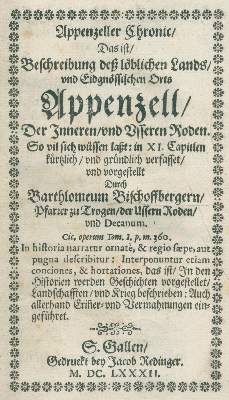 Appenzeller Chronic/
Das ist/
Beschreibung deß löblichen Lands/
und Eidgnössischen Orts
Appenzell/
Der Inneren/und Usseren Roden.
So vil sich wüssen laßt: in XI. Capitlen
kürtzlich/ und gründlich verfasset/
und vorgestellt
Durch
Barthlomeum Bischoffbergern/
Pfarrer zu Trogen/der Ussern Roden/
und Decanum.
Cic, operum Tom. I, p, m. 360.
In historia narratur ornatè, & regio sæpe, aut
pugna describitur: Interponuntur etiam
conciones, & hortationes, das ist/ In den
Historien werden Geschichten vorgestellet/
Landschafften/ und Krieg beschrieben: Auch
allerhand Exüer- und Vermahnungen ein-
geführet.
S. Gallen/
Gedruckt bey Jacob Redinger.
M. DC. LXXXII.